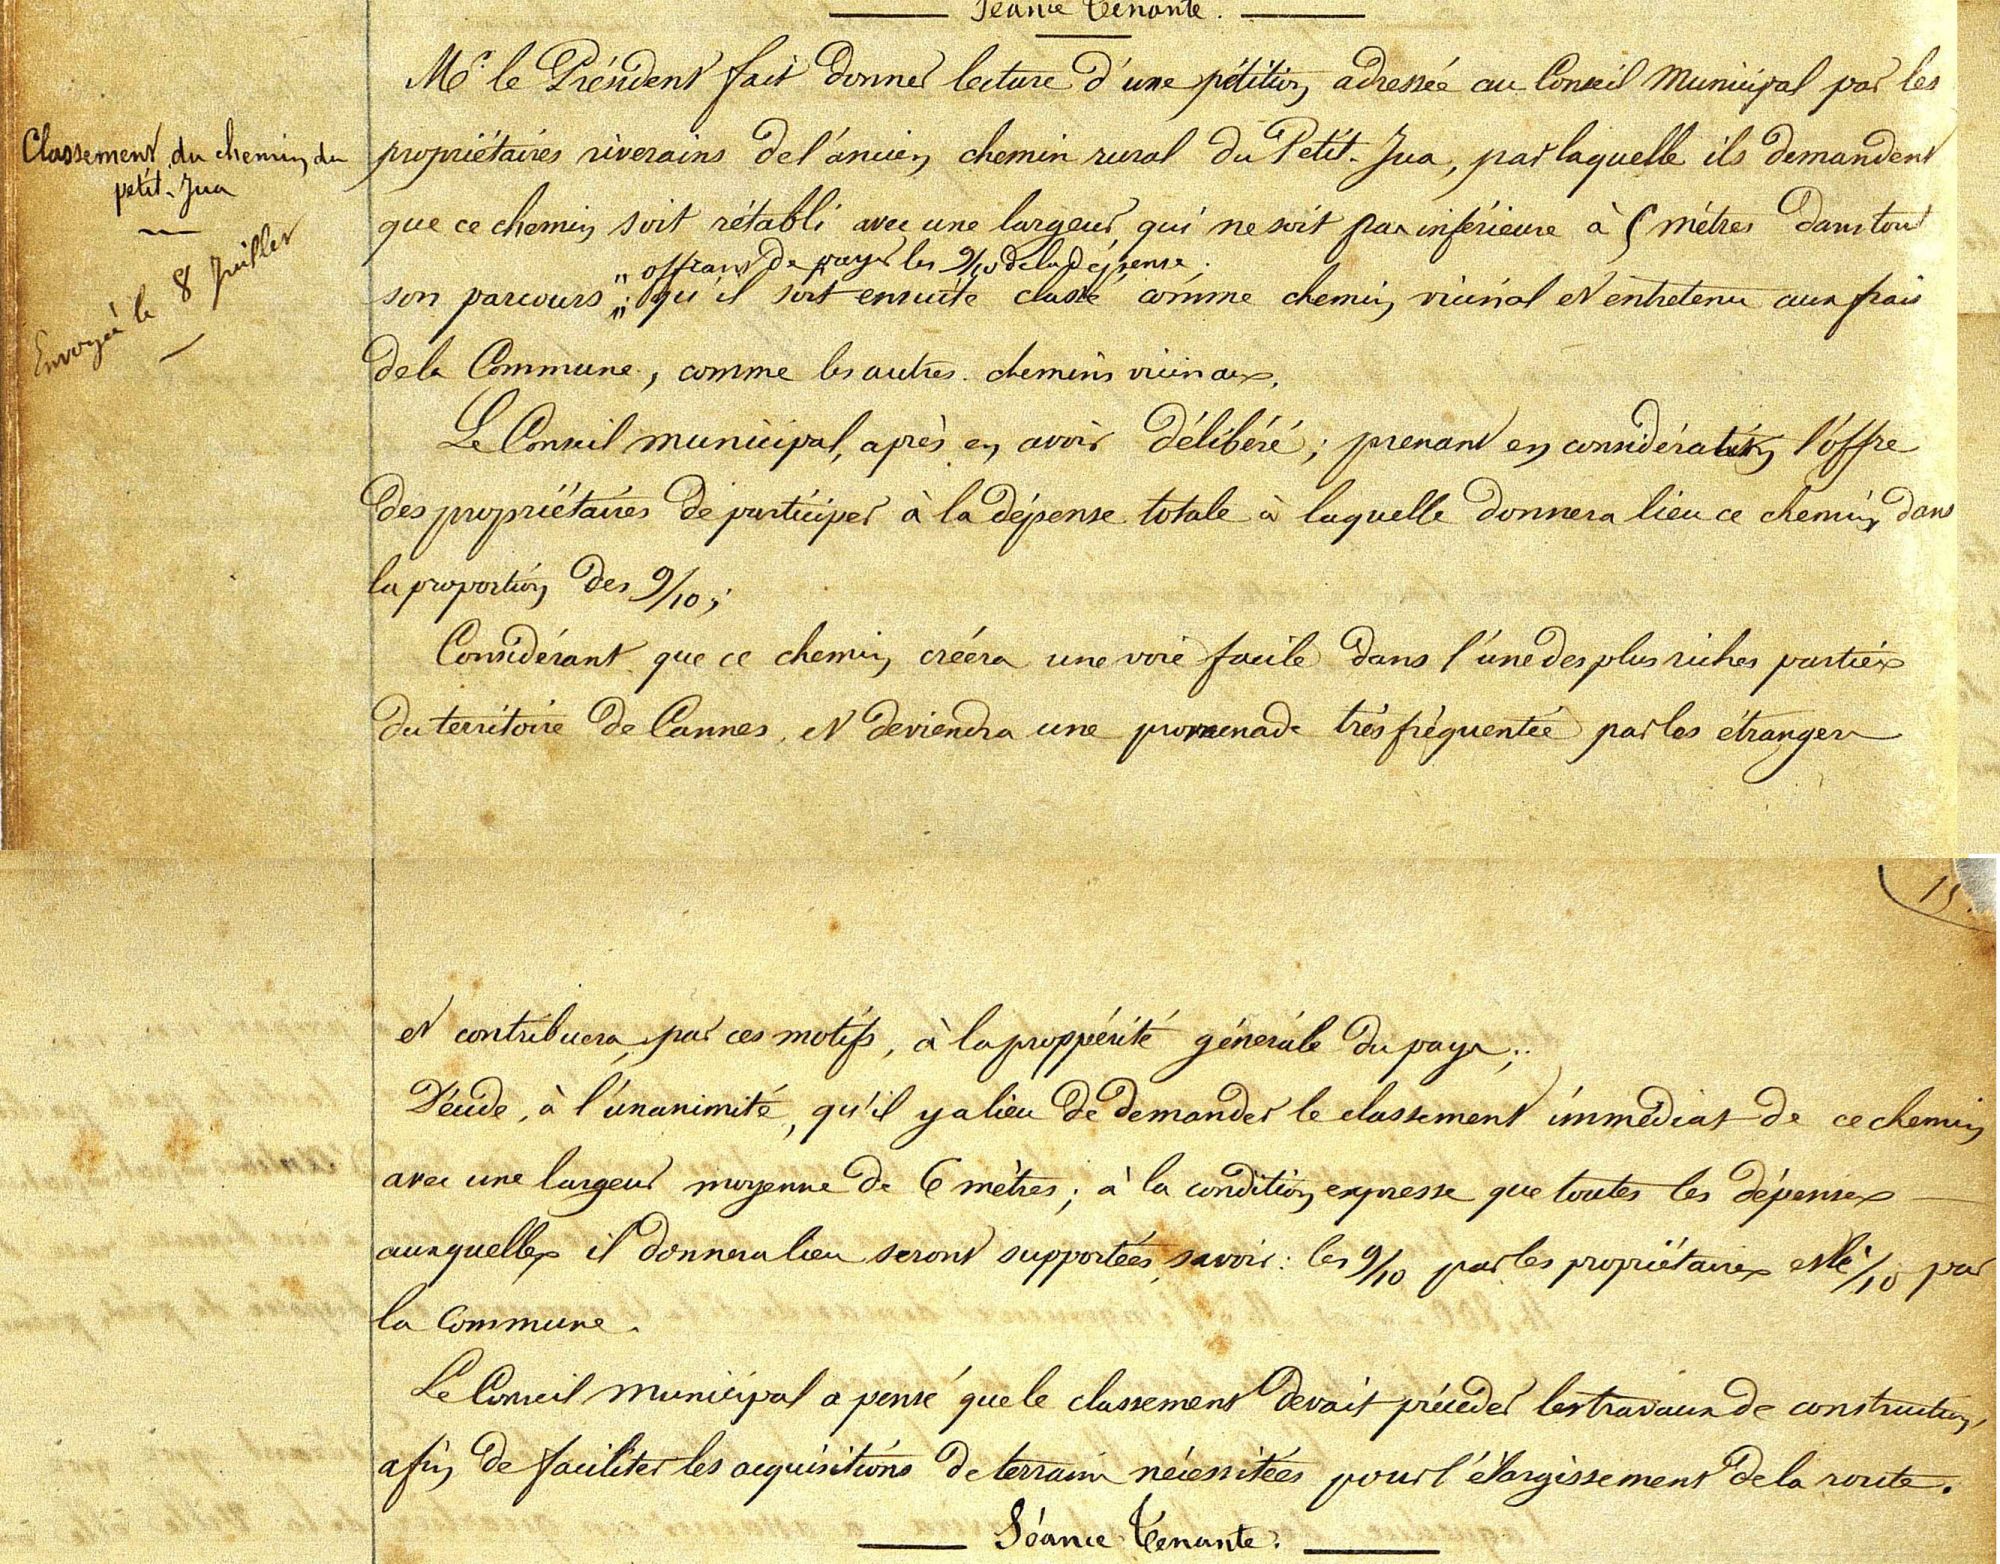 Séance Tenante.
Mr. le Président fait donner lecture d'une pétition adressée au Conseil Municipal par les
Classement du chemin du
petit-Jua
Envoyé le 8 Juillet
propriétaires riverains de l'ancien chemin rural du Petit-Jua, par laquelle ils demandent
que ce chemin soit rétabli avec une largeur qui ne soit pas inférieure à 5 mètres dans tout
" offrant de payer les 9/10 de la dépense.
son parcours "; qu'il soit ensuite classé comme chemin vicinal et entretenu aux frais
de la Commune, comme les autres chemins vicinaux.
Le Conseil municipal, après en avoir délibéré; prenant en considération l'offre
des propriétaires de participer à la dépense totale à laquelle donnera lieu ce chemin dans
la proportion des 9/10;
Considérant que ce chemin créera une voie facile dans l'une des plus riches parties
du territoire de Cannes, et deviendra une promenade très fréquentée par les étrangers
15.
et contribuera, par ces motifs, à la proppérité générale du pays;
Décide, à l'unanimité, qu'il y a lieu de demander le classement immédiat de ce chemin
avec une largeur moyenne de 6 mètres; à la condition expresse que toutes les dépenses
auxquelles il donnera lieu seront supportées, savoir: les 9/10 par les propriétaires et le 1/10 par
la Commune.
Le Conseil municipal a pensé que le classement devait précéder les travaux de construction,
afin de faciliter les acquisitions de terrain nécessitées pour l'élargissement de la route.
Séance Tenante.